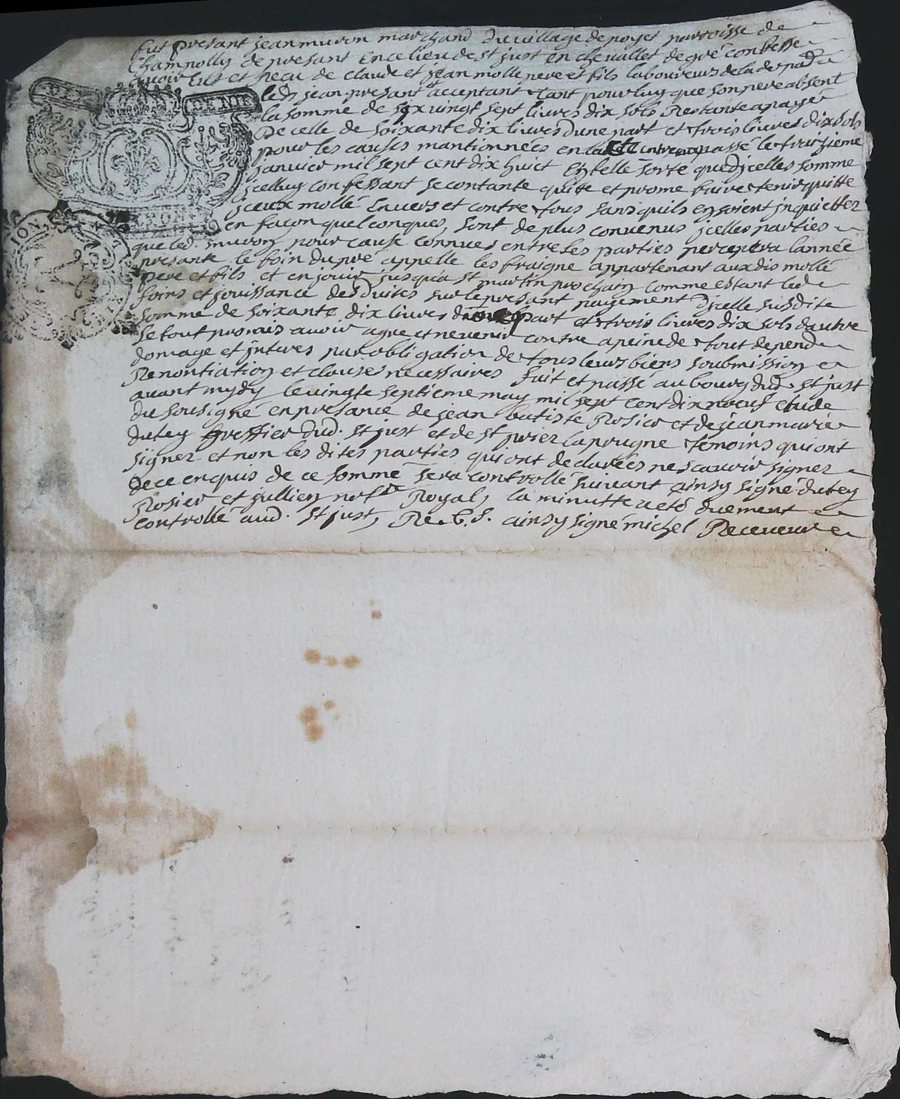 fut presant jean muron marchand du village de noyer parroisse de
Champolly de presant en ce lieu de st just en chevallet de gré confesse
avoir eut et recu de claude et jean molle pere et fils laboureurs de la de pad
led jean presant et acceptant tant pour luy que son pere absent
la somme de six vingt sept livres dix sols restante a payer
de celle de soixante dix livres dune part et trois livres dix sols
pour les causes mantionnées en passé le
janvier mil sept cent dix huit en telle sorte que dicelles somme
icelluy confessant se contante quitte et prome faire tenir quitte
iceux mollé envers et contre tous sans quils en soient inquiettez
en facon quelconques, sont de plus convenus icelles parties
que led muron pour cause connues entre les parties percevra lannée
presante le foin du pré appelle les fraigne appartenant auxdis mollé
pere et fils et en jouir jusqua st martin prochain comme estant led
foins et jouissance deduites sur le presant payement dicelle susdite
somme de soixante dix livres dune part et trois livres dix sols dautre
le tout promis avoir agre et ne venir contre a peine de tout depend
domage et interes par obligation de tous leurs biens soubmission
Renontiation et clauses necessaires fait et passe au bourg dud. st just
avant mydy le vingt septieme may mil sept cent dix noeuf
du sousigné en presance de jean batiste Rosier et de jean marie
dutey greffier dud. st just et de st priez laprugne temoins qui ont
signez et non les dites parties qui ont declarées ne scavoir signer
de ce enquis de ce sommé sera controllé suivant ainsy signe dutey
Rosier et jullien notre Royal, la minutte a eté duement
controllé aud. st just, Re. 6. s. ainsy signe michel Receveur